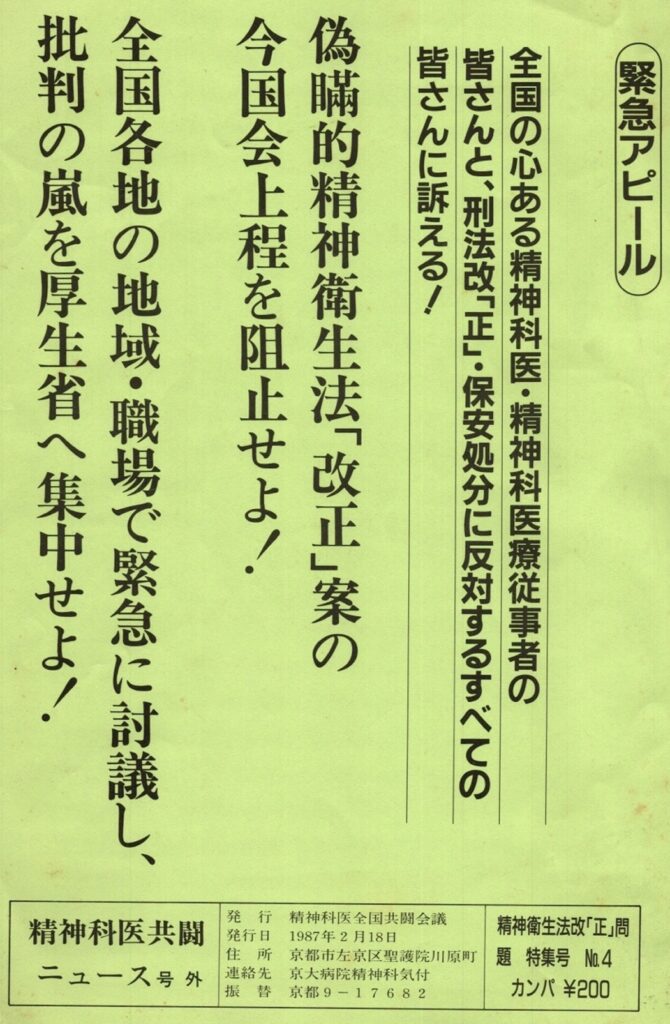 緊急アピール
全国の心ある精神科医・精神科医療従事者の
皆さんと、刑法改「正」・保安処分に反対するすべての
皆さんに訴える!
偽瞞的精神衛生法「改正」案の
今国会上程を阻止せよ!
全国各地の地域・職場で緊急に討議し、
批判の嵐を厚生省へ集中せよ!
精神科医共闘
ニュース号外
発行 精神科医全国共闘会議
発行日 1987年2月18日
住所 京都市左京区聖護院川原町
連絡先 京大病院精神科気付
振替 京都9-17682
精神衛生法改「正」問
題 特集号 №4
カンパ ¥200